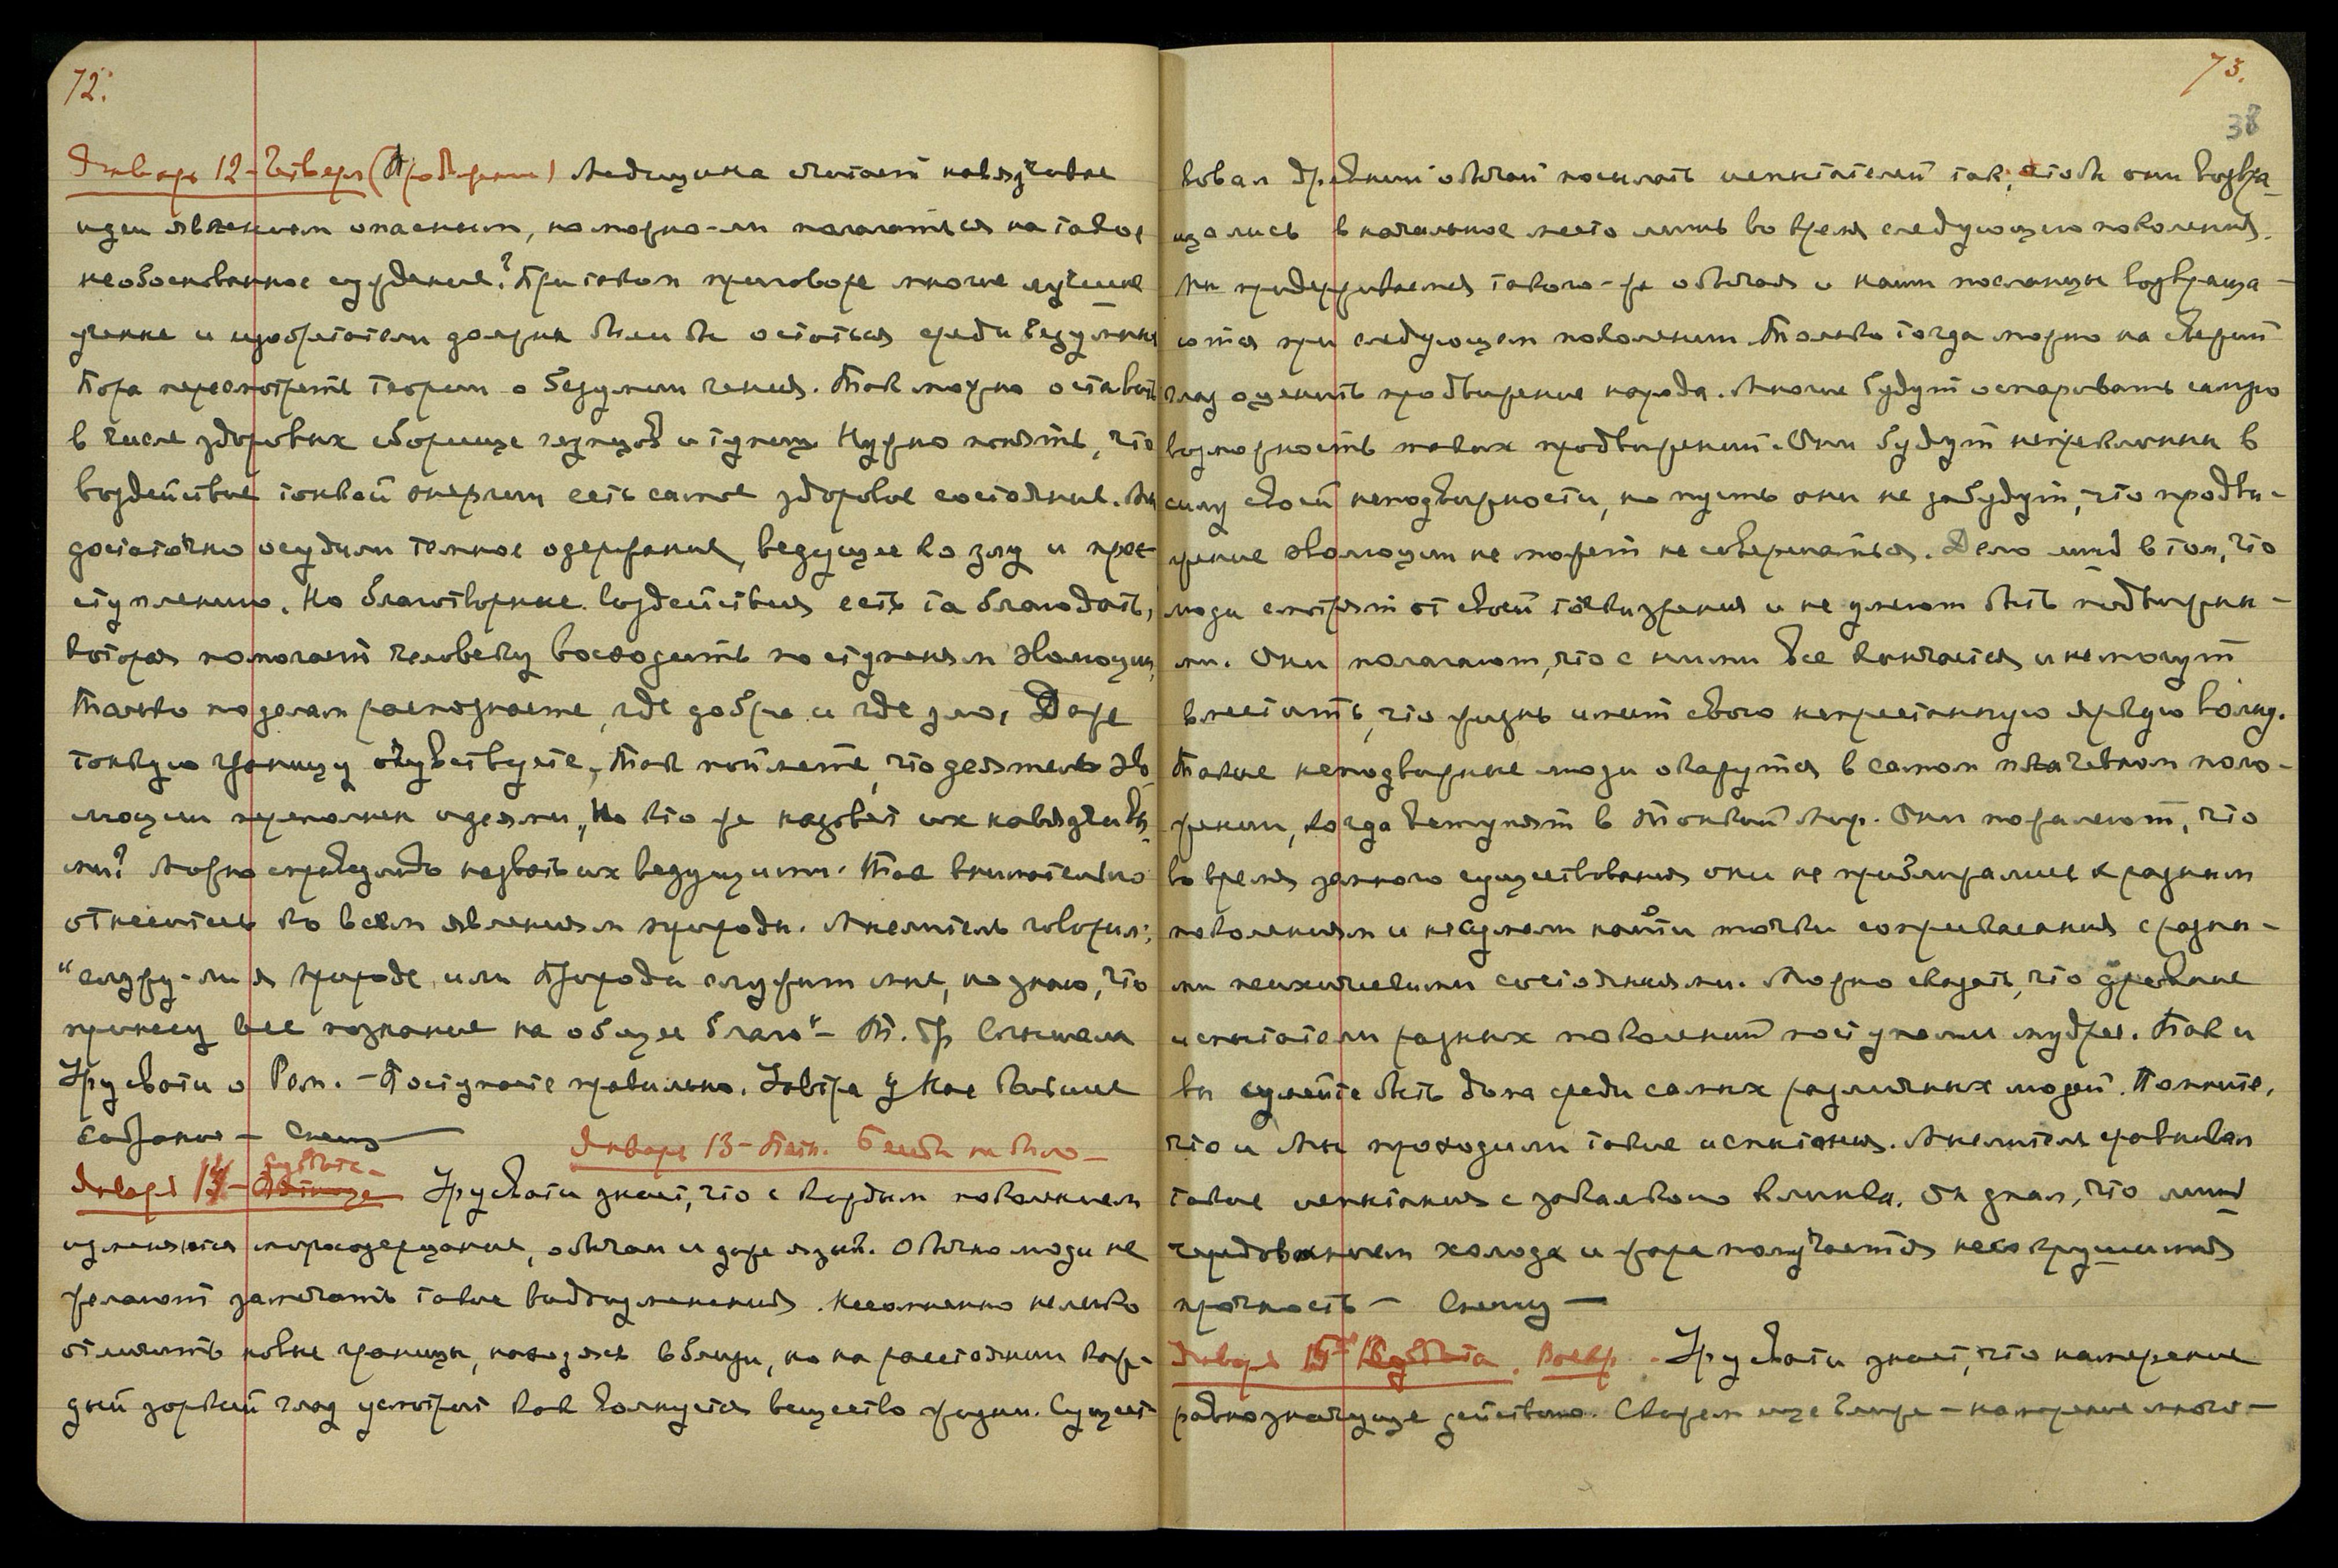 72.
Январь 12 - Четверг (Продолжение) Медицина считает навязчивые
идеи явлением опасным, но можно-ли полагаться на такое
необоснованное суждение? При таком приговоре многие лучшие
ученые и изобретатели должны были бы остаться среди безумных
Пора пересмотреть теории о безумии гения. Так можно оставить
в числе здоровых сборище глупцов и тупиц Нужно понять, что
воздействие тонкой энергии есть самое здоровое состояние. Мы
достаточно осудили темное одержание, ведущее ко злу и прес-
туплению. Но благотворные воздействия есть та благодать,
которая помогает человеку восходить по ступеням эволюции,
Только по делам распознаете, где добро и где зло, Даже
тонкую границу очувствуете, Так поймете, что деятель эво-
люции преполнен идеями, Но кто же назовет их навязчивы-
ми? Можно справедливо назвать их ведущими. Так внимательно
отнеситесь ко всем явлениям природы. Мыслитель говорил:
"служу-ли я природе, или Природа служит мне, но знаю, что
принесу все познание на общее благо" - Т. Бр. слышали
Урусвати о Ром. - Поступаете правильно. Завтра у Нас Большие
Собрания - Спешу -
Январь 13 - Пятн. Беседы не было -
Январь 14 - Суббота - Урусвати знает, что с каждым поколением
изменяются миросозерцание, обычаи и даже язык. Обычно люди не
желают замечать такие видоизменения. Несомненно нелегко
отличить новые границы, находясь вблизи, но на расстоянии каж-
дый зоркий глаз усмотрит как волнуется вещество жизни. Сущест-
73.
38
вовал древний обычай посылать испытателей так, чтобы они возвра-
щались в начальное место лишь во время следующего поколения.
Мы придерживаемся такого-же обычая и наши посланцы возвраща-
ются при следующем поколении. Только тогда можно на свежий
глаз оценить продвижение народа. Многие будут оспаривать самую
возможность таких продвижений. Они будут непреклонны в
силу своей неподвижности, но пусть они не забудут, что продви-
жение эволюции не может не совершаться. Дело лишь в том, что
люди смотрят от своей точки зрения и не умеют быть подвижны-
ми. Они полагают, что с ними все кончается и не могут
вместить, что жизнь имеет свою непрестанную яркую волну.
Такие неподвижные люди окажутся в самом плачевном поло-
жении, когда вступят в Тонкий Мир. Они пожалеют, что
во время земного существования они не приближались к разным
поколениям и не сумели найти точки соприкасания с разны-
ми психическими состояниями. Можно сказать, что древние
испытатели разных поколений поступали мудро. Так и
вы сумейте быть дома среди самых различных людей. Помните,
что и Мы проходили такие испытания. Мыслитель сравнивал
такие испытания с закалкою клинка. Он знал, что лишь
чередованием холода и жара получается несокрушимая
прочность - Спешу -
Январь 15 Воскр. - Урусвати знает, что намерение
равнозначуще действию. Скажем еще больше - намерение много-